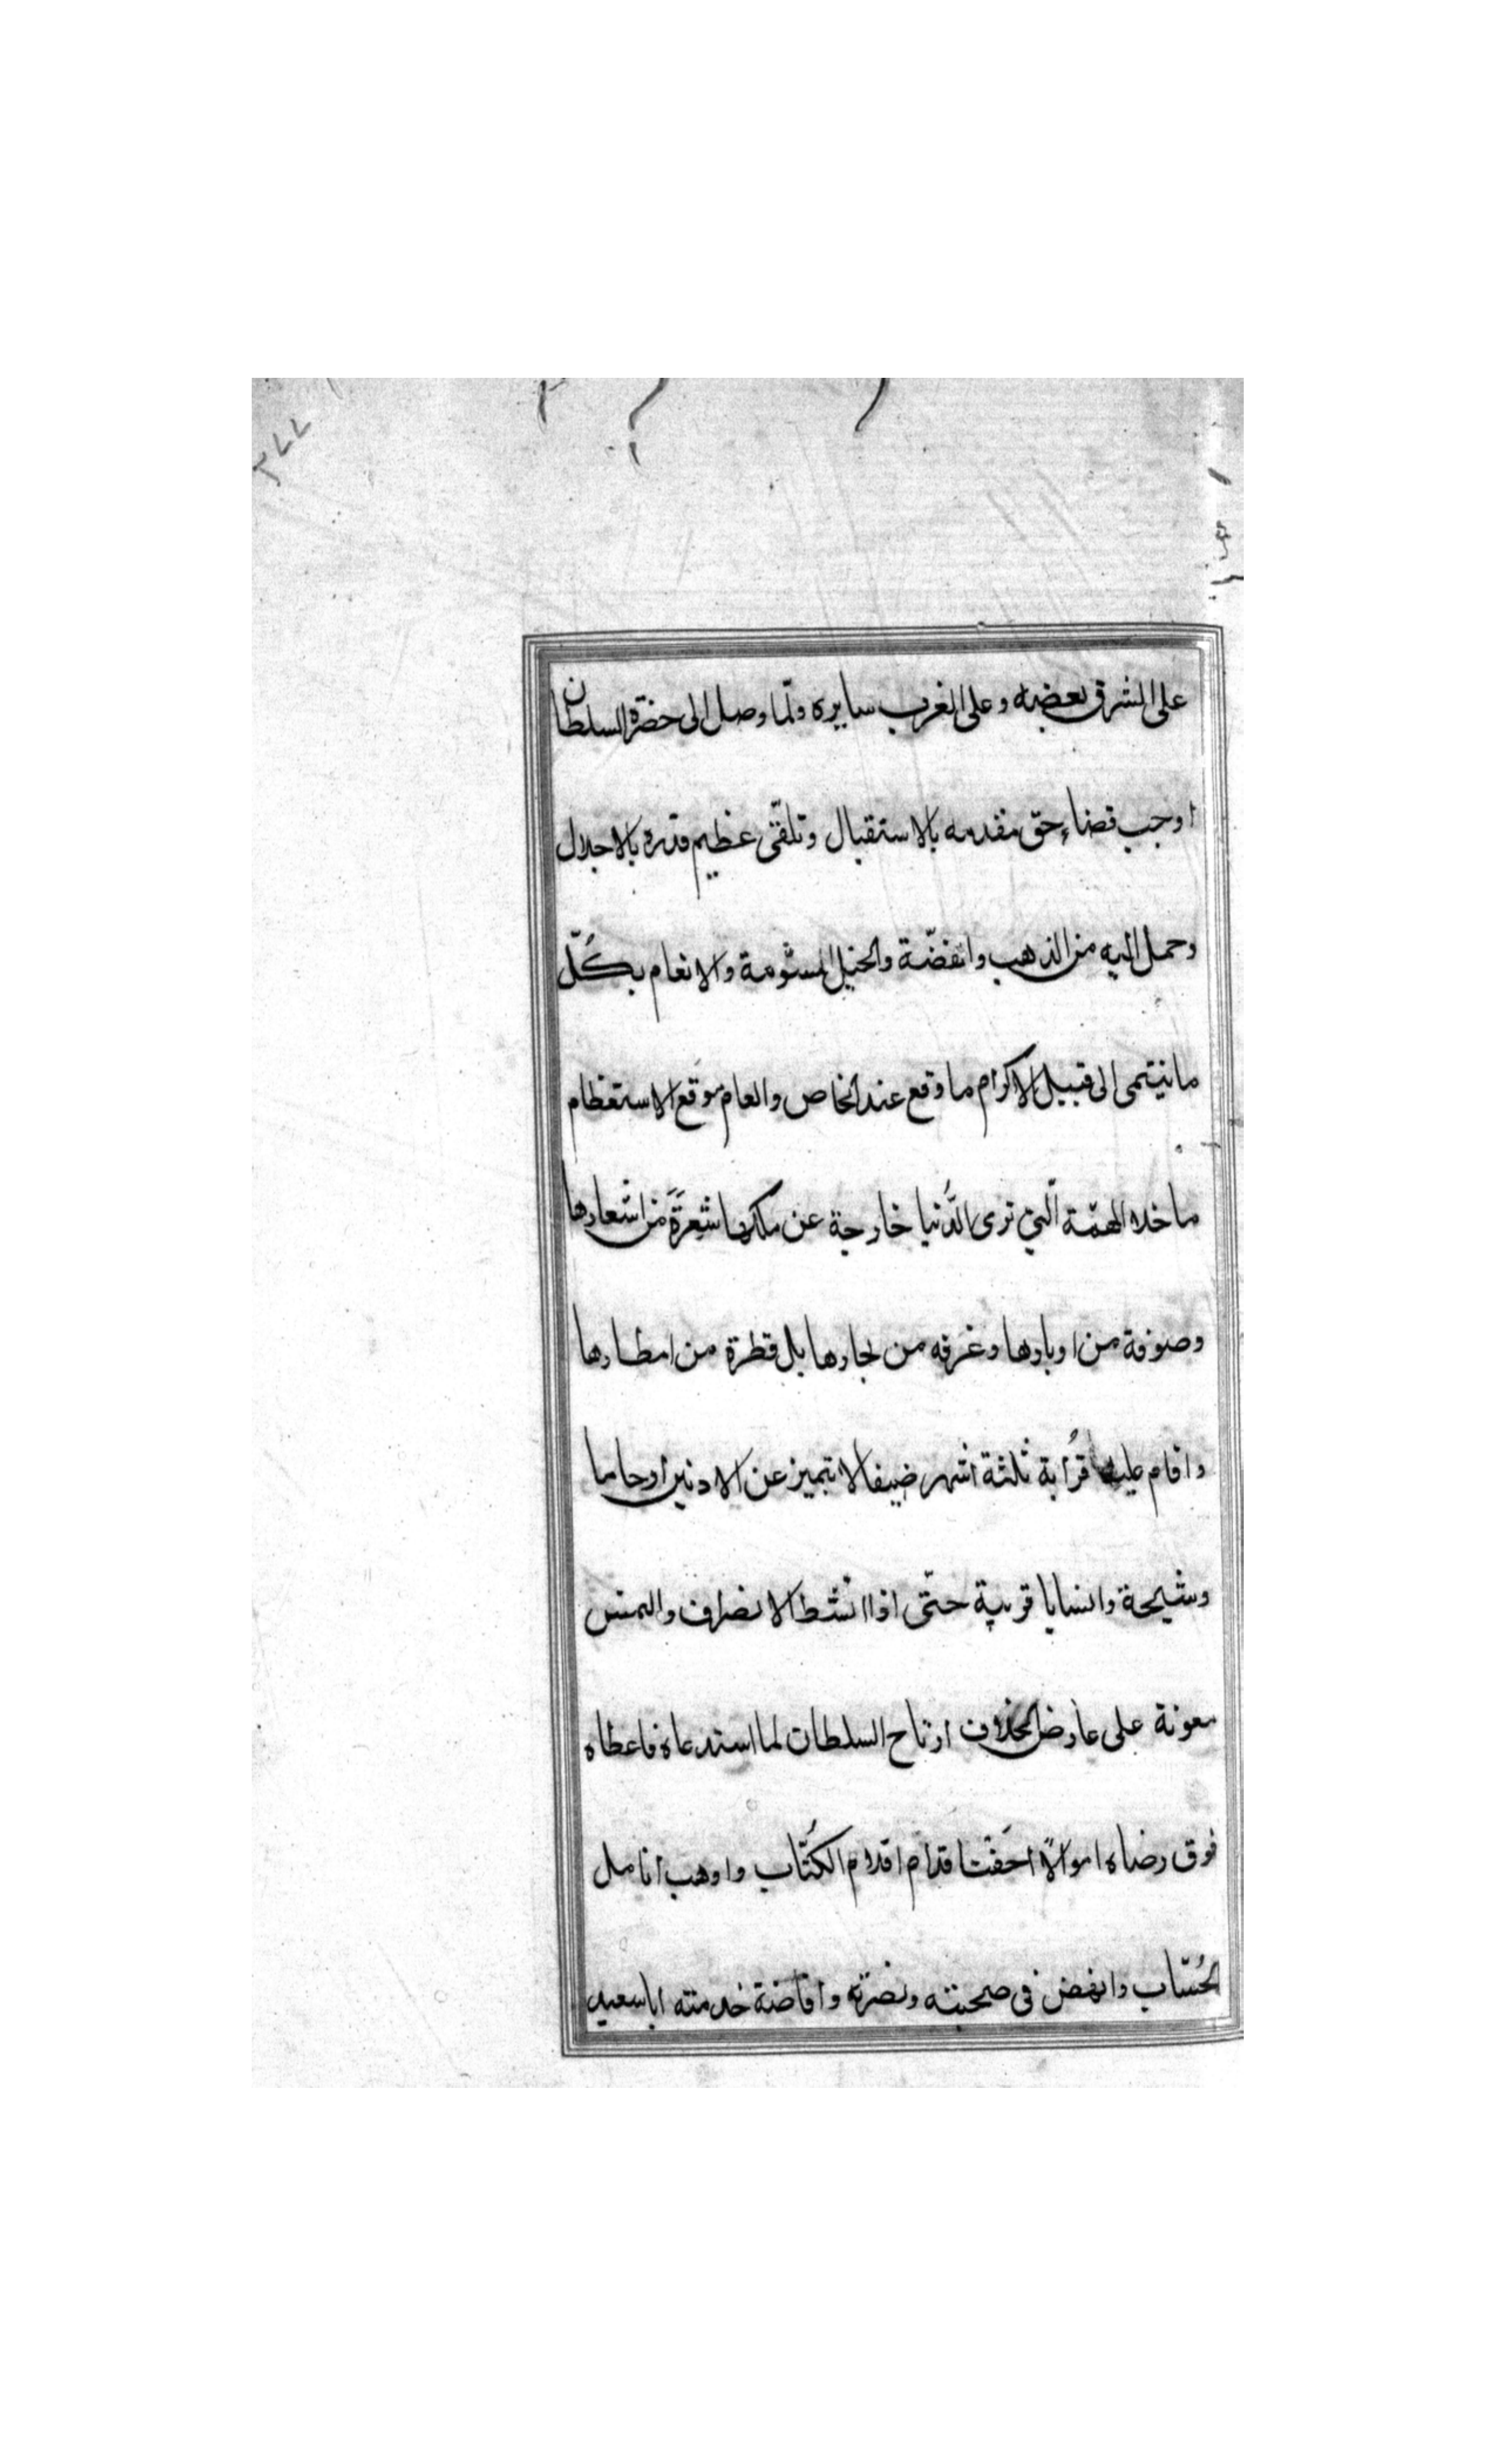 على المشرق بعضه وعلى المغرب سايره ولمّا وصل الى حضرة السلطان
اوجب قضاء حق مقدمه بالاستقبال وتلقّى عظيم قدره بالاجلال
وحمل اليه من الذهب والفضّة والخيل المسوّمة والانعام بكُلّ
ما ينتمى الى قبيل الاكرام ما وقع عند الخاص والعام موقع الاستعظام
ما خلا الهمّة الّتي ترى الدُّنيا خارجة عن ملكها شعرَةً من اشعارها
وصوفة من اوبارها وغرفه من بحارها بل قطرة من امطارها
واقام عليه قُرابة ثلثة اشهر ضيفا لا تميز عن الادنين ارحاما
وشيجة وانسابا قريبة حتّى اذا انشط الانصراف والتمس
معونة على عارض الخلاف ارتاح السلطان لما استدعاه فاعطاه
فوق رضاه اموالاً احفت اقدام اقلام الكُتّاب واوهب انامل
الحُسّاب وانهض فى صحبته ونصرته وافاضة خدمته اباسعيد